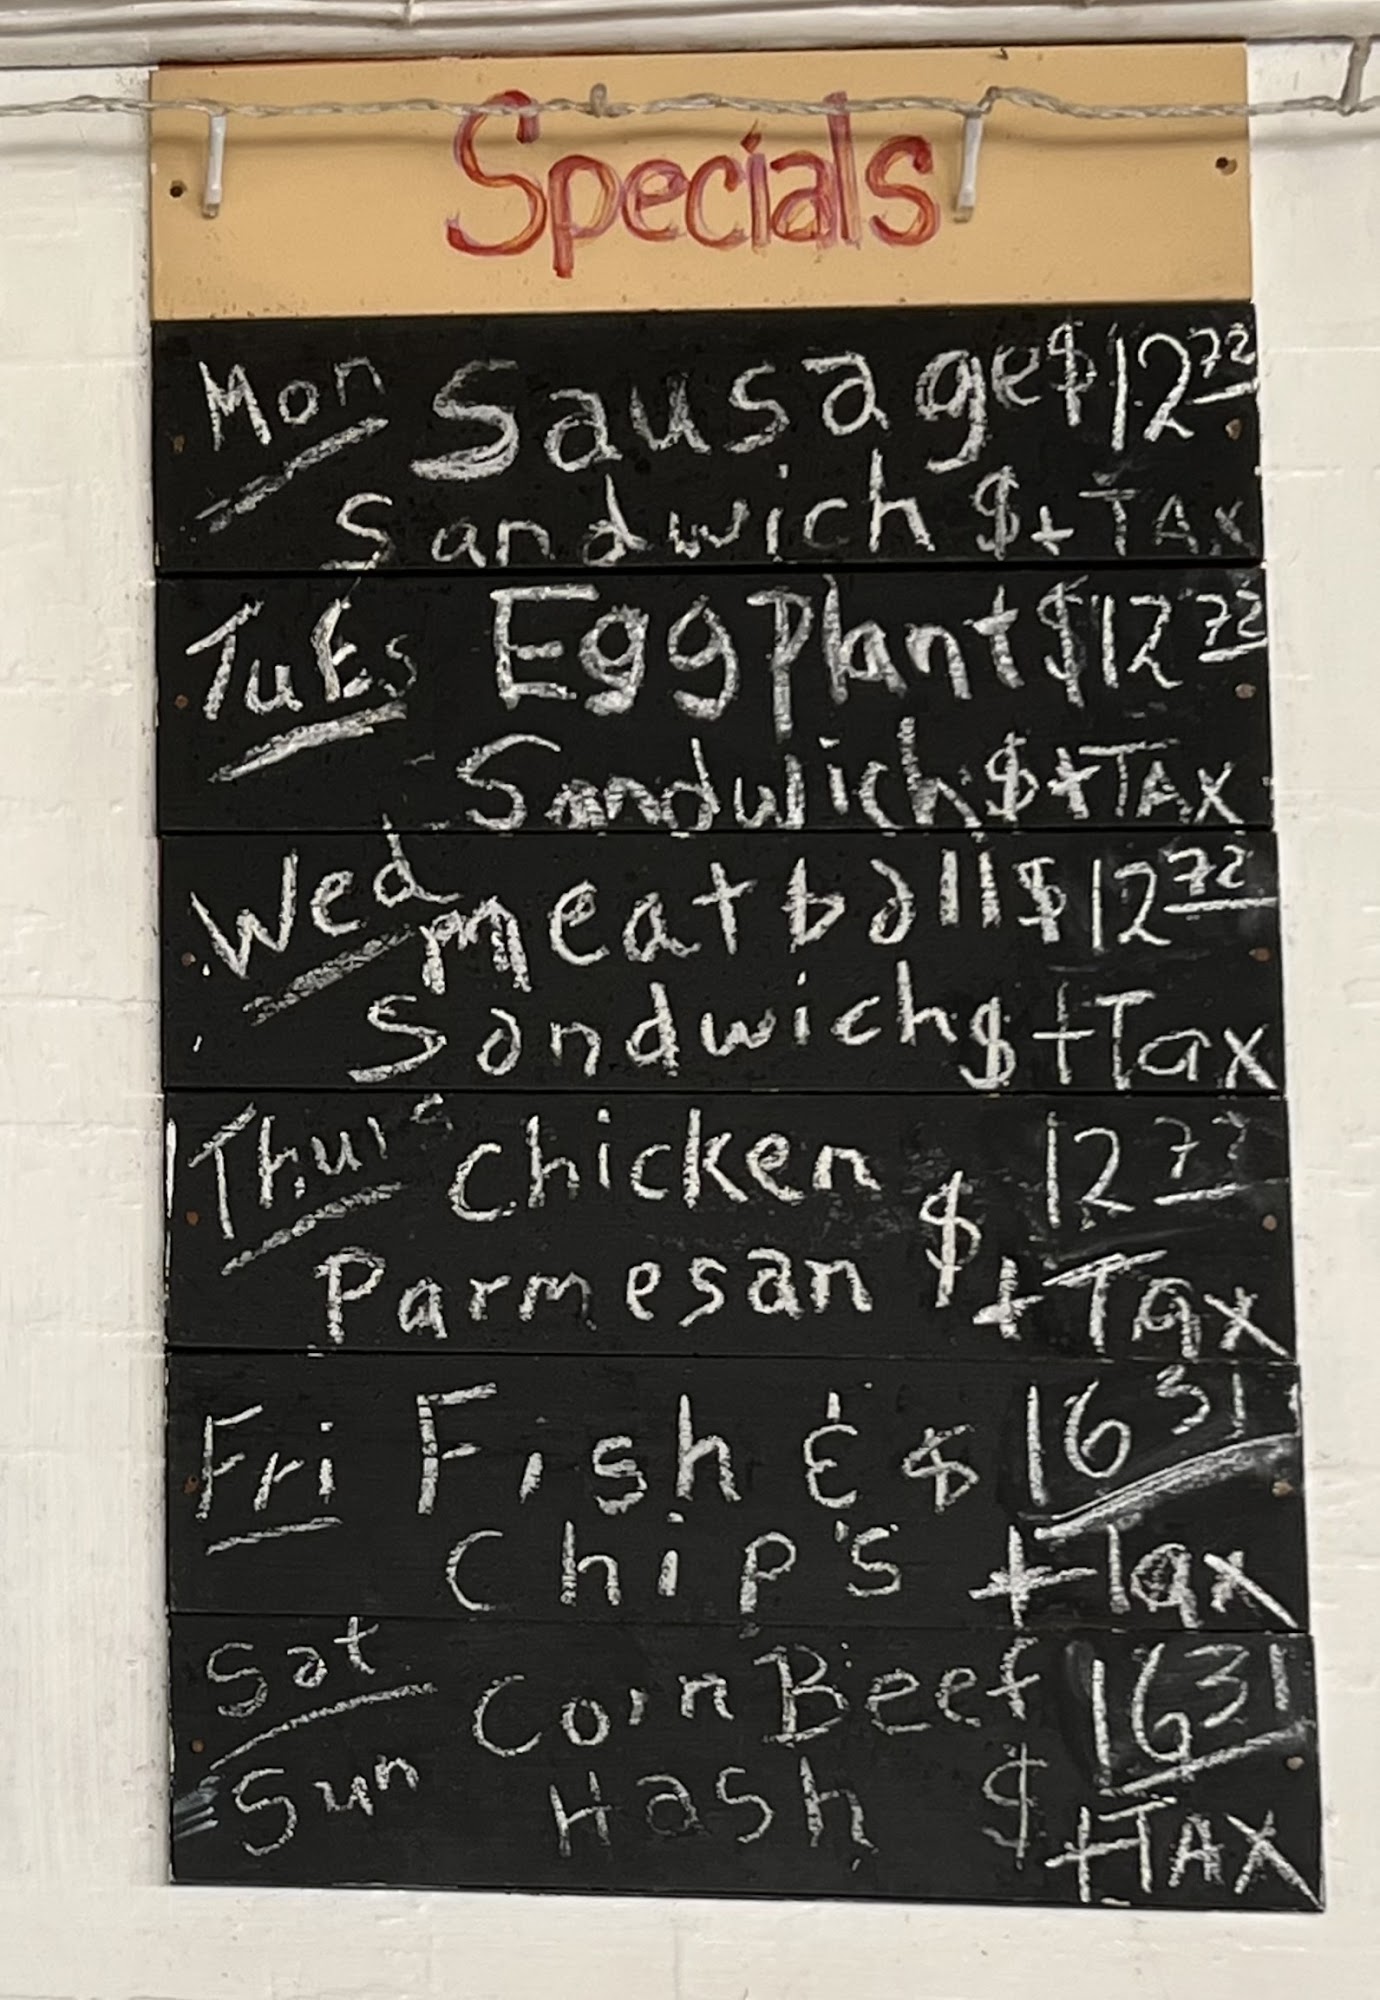 Specials
Mon Sausage $12 72
Sandwich $ + TAX
TuEs EggPlant $12 72
Sandwich $ + TAX
Wed meatball $12 72
Sandwich $ + Tax
Thurs Chicken $ 12 72
Parmesan + Tax
Fri Fish & $ 16 31
Chip's + Tax
Sat Corn Beef 16 31
Sun Hash $ + TAX